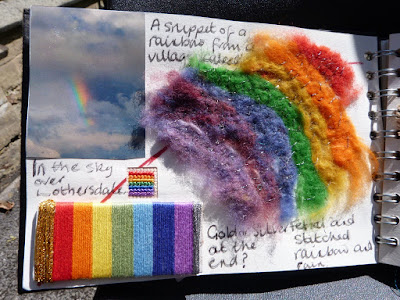 A snippet of a
rainbow from a
village called
In the sky
over
Lothersdale
Gold or silver
at the
end?
Felted and
stitched
rainbow and
rain.